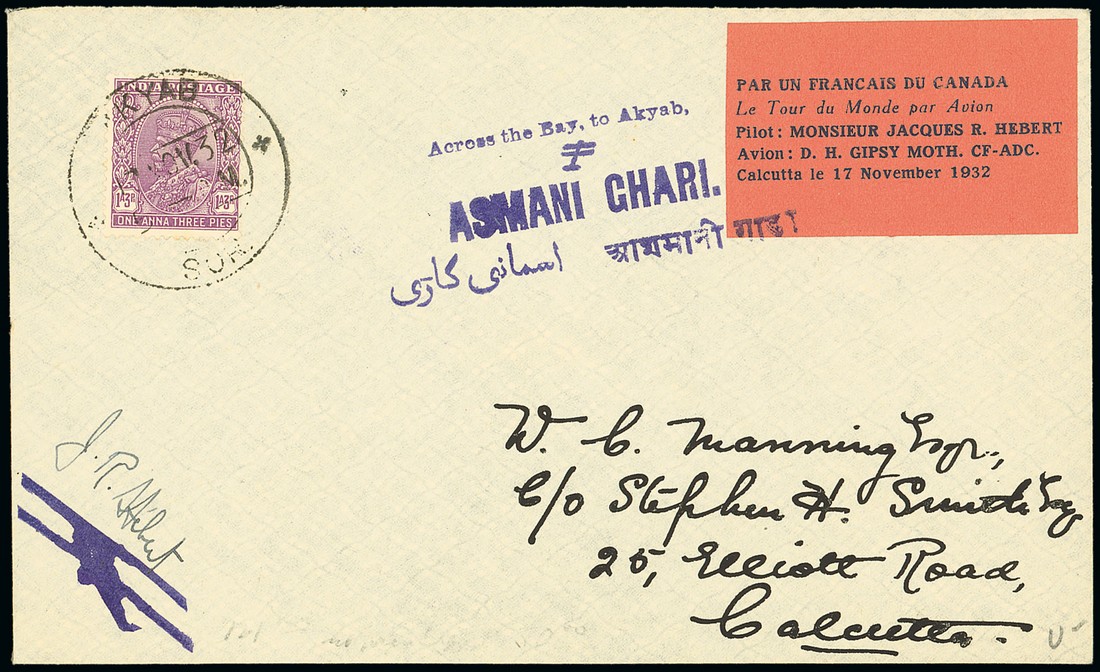 INDIA POSTAGE
1A3P 1A3P
ONE ANNA THREE PIES
AKYAB
Across the Bay, to Akyab,
ASMANI GHARI.
اسمانی گاڑی आशमानी गाड़ी
PAR UN FRANCAIS DU CANADA
Le Tour du Monde par Avion
Pilot: MONSIEUR JACQUES R. HEBERT
Avion: D. H. GIPSY MOTH. CF-ADC.
Calcutta le 17 November 1932
J. R. Hébert
W. C. Manning Esqr.,
C/o Stephen H. Smith Esq
25, Elliott Road,
Calcutta.